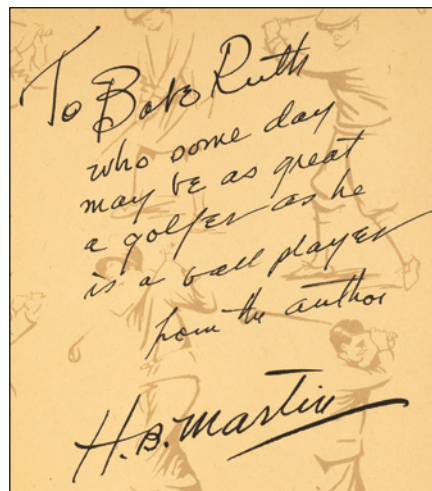 To Babe Ruth
who some day
may be as great
a golfer as he
is a ball player
from the author
H.B. Martin